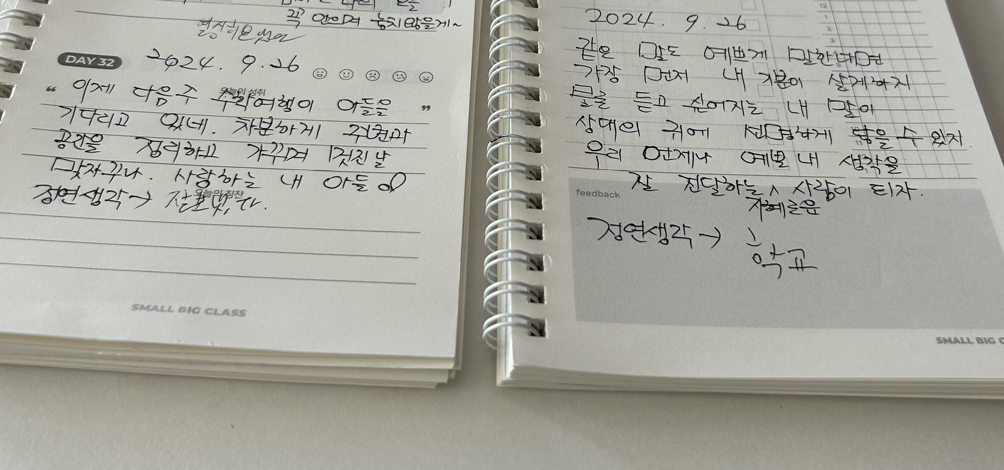 꼭 안이며 놓치않을게~
DAY 32
2024. 9. 26
"이제 다음주 수학여행이 아들을
기다리고 있네. 차분하게 주변과
공간을 정리하고 가꾸며 멋진 날
맞자꾸나. 사랑하는 내 아들
정연생각→
SMALL BIG CLASS
2024. 9. 26
같은 말도 예쁘게 말한다면
가장 먼저 내 기분이 살게하지
말을 듣고 싶어지는 내 말이
상대의 귀에 선명하게 닿을 수 있지.
우리 언제나 예쁜 내 생각을
잘 전달하는 지혜로운 사람이 되자.
feedback
정연생각→ 학교
SMALL BIG C